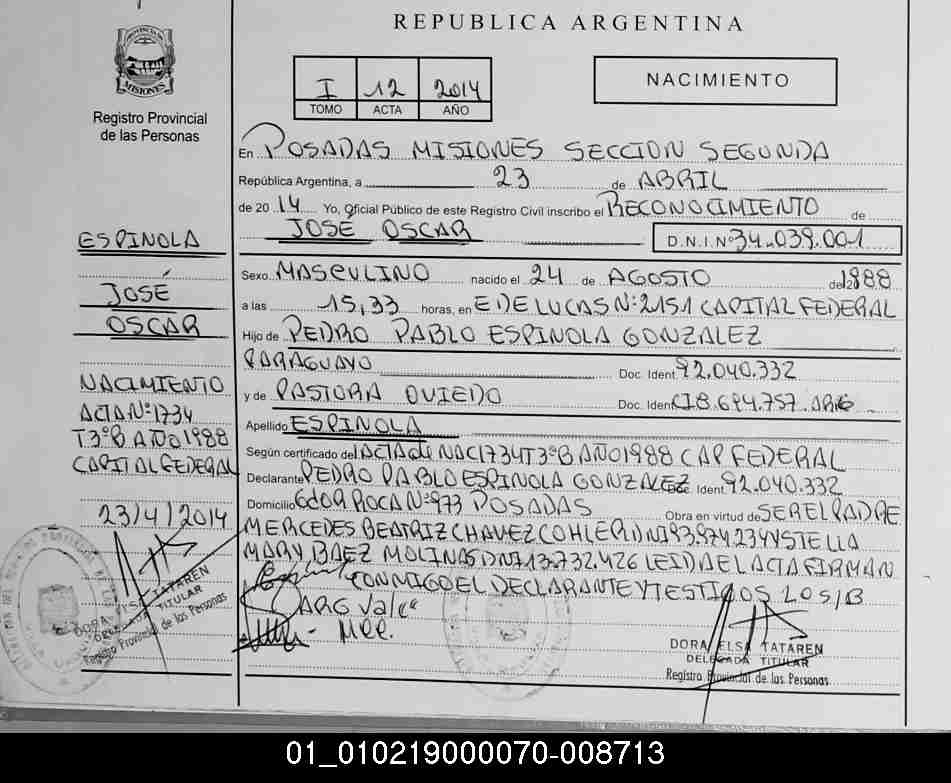 REPUBLICA ARGENTINA
PROVINCIA DE
MISIONES
Registro Provincial
de las Personas
I 12 2014
TOMO ACTA AÑO
NACIMIENTO
En POSADAS MISIONES SECCION SEGUNDA
República Argentina, a 23 de ABRIL
de 2014 Yo, Oficial Público de este Registro Civil inscribo el RECONOCIMIENTO de
JOSÉ OSCAR D.N.I.Nº 34.039.001
Sexo MASCULINO nacido el 24 de AGOSTO de 1988
a las 15,33 horas, en E DE LUCAS Nº 2151 CAPITAL FEDERAL
Hijo de PEDRO PABLO ESPINOLA GONZALEZ
PARAGUAYO Doc. Ident. 92.040.332
y de PASTORA OVIEDO Doc. Ident. CI 8.694.757 ARG
Apellido ESPINOLA
Según certificado del ACTA de NAC 1734 T3ºB AÑO 1988 CAP FEDERAL
Declarante PEDRO PABLO ESPINOLA GONZALEZ Doc. Ident. 92.040.332
Domicilio CdOR ROCA Nº 973 POSADAS Obra en virtud de SER EL PADRE
MERCEDES BEATRIZ CHAVEZ COHLER DNI 93974234 Y STELLA
MARY BAEZ MOLINAS DNI 13.732.426 LEIDA EL ACTA FIRMAN
CONMIGO EL DECLARANTE Y TESTIGOS LOS/B
DORA ELSA TATAREN
DELEGADA TITULAR
Registro Provincial de las Personas
ESPINOLA
JOSÉ
OSCAR
NACIMIENTO
ACTA Nº 1734
T3ºB AÑO 1988
CAPITAL FEDERAL
23/4/2014
DORA ELSA TATAREN
DELEGADA TITULAR
Registro Provincial de las Personas
01_010219000070-008713